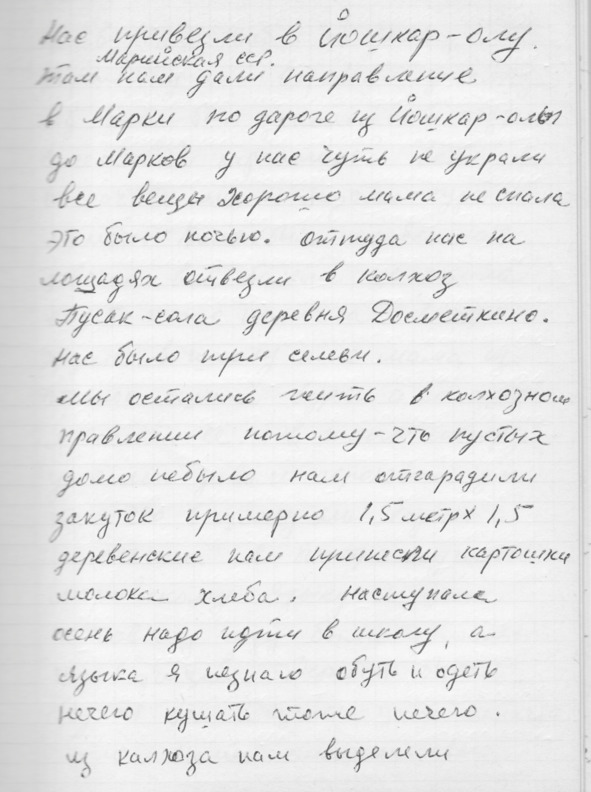 Нас привезли в Йошкар-олу.
Марийская сср.
там нам дали направление
в Марки по дароге из Йошкар-олы
до Марков у нас чуть не украли
все вещы хорошо мама не спала
это было ночью. оттуда нас на
лошадях отвезли в колхоз
Пусак-сола деревня Досметкино.
нас было три семьи.
мы остались жить в колхозном
правлении потому-что пустых
домо небыло нам отгарадили
закуток примерно 1,5 метр х 1,5
деревенские нам принесли картошки
молока хлеба. наступала
осень надо идти в школу, а
языка я незнаю обуть и одеть
нечего кушать тоже нечего.
из калхоза нам выделели